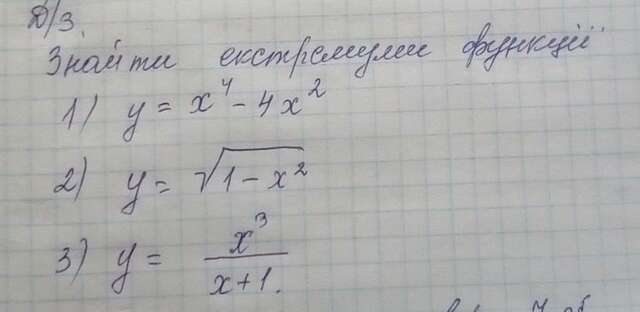 Д/З.
Знайти екстремуми функції
1) y = x⁴ - 4x²
2) y = √(1 - x²)
3) y = x³/(x+1).